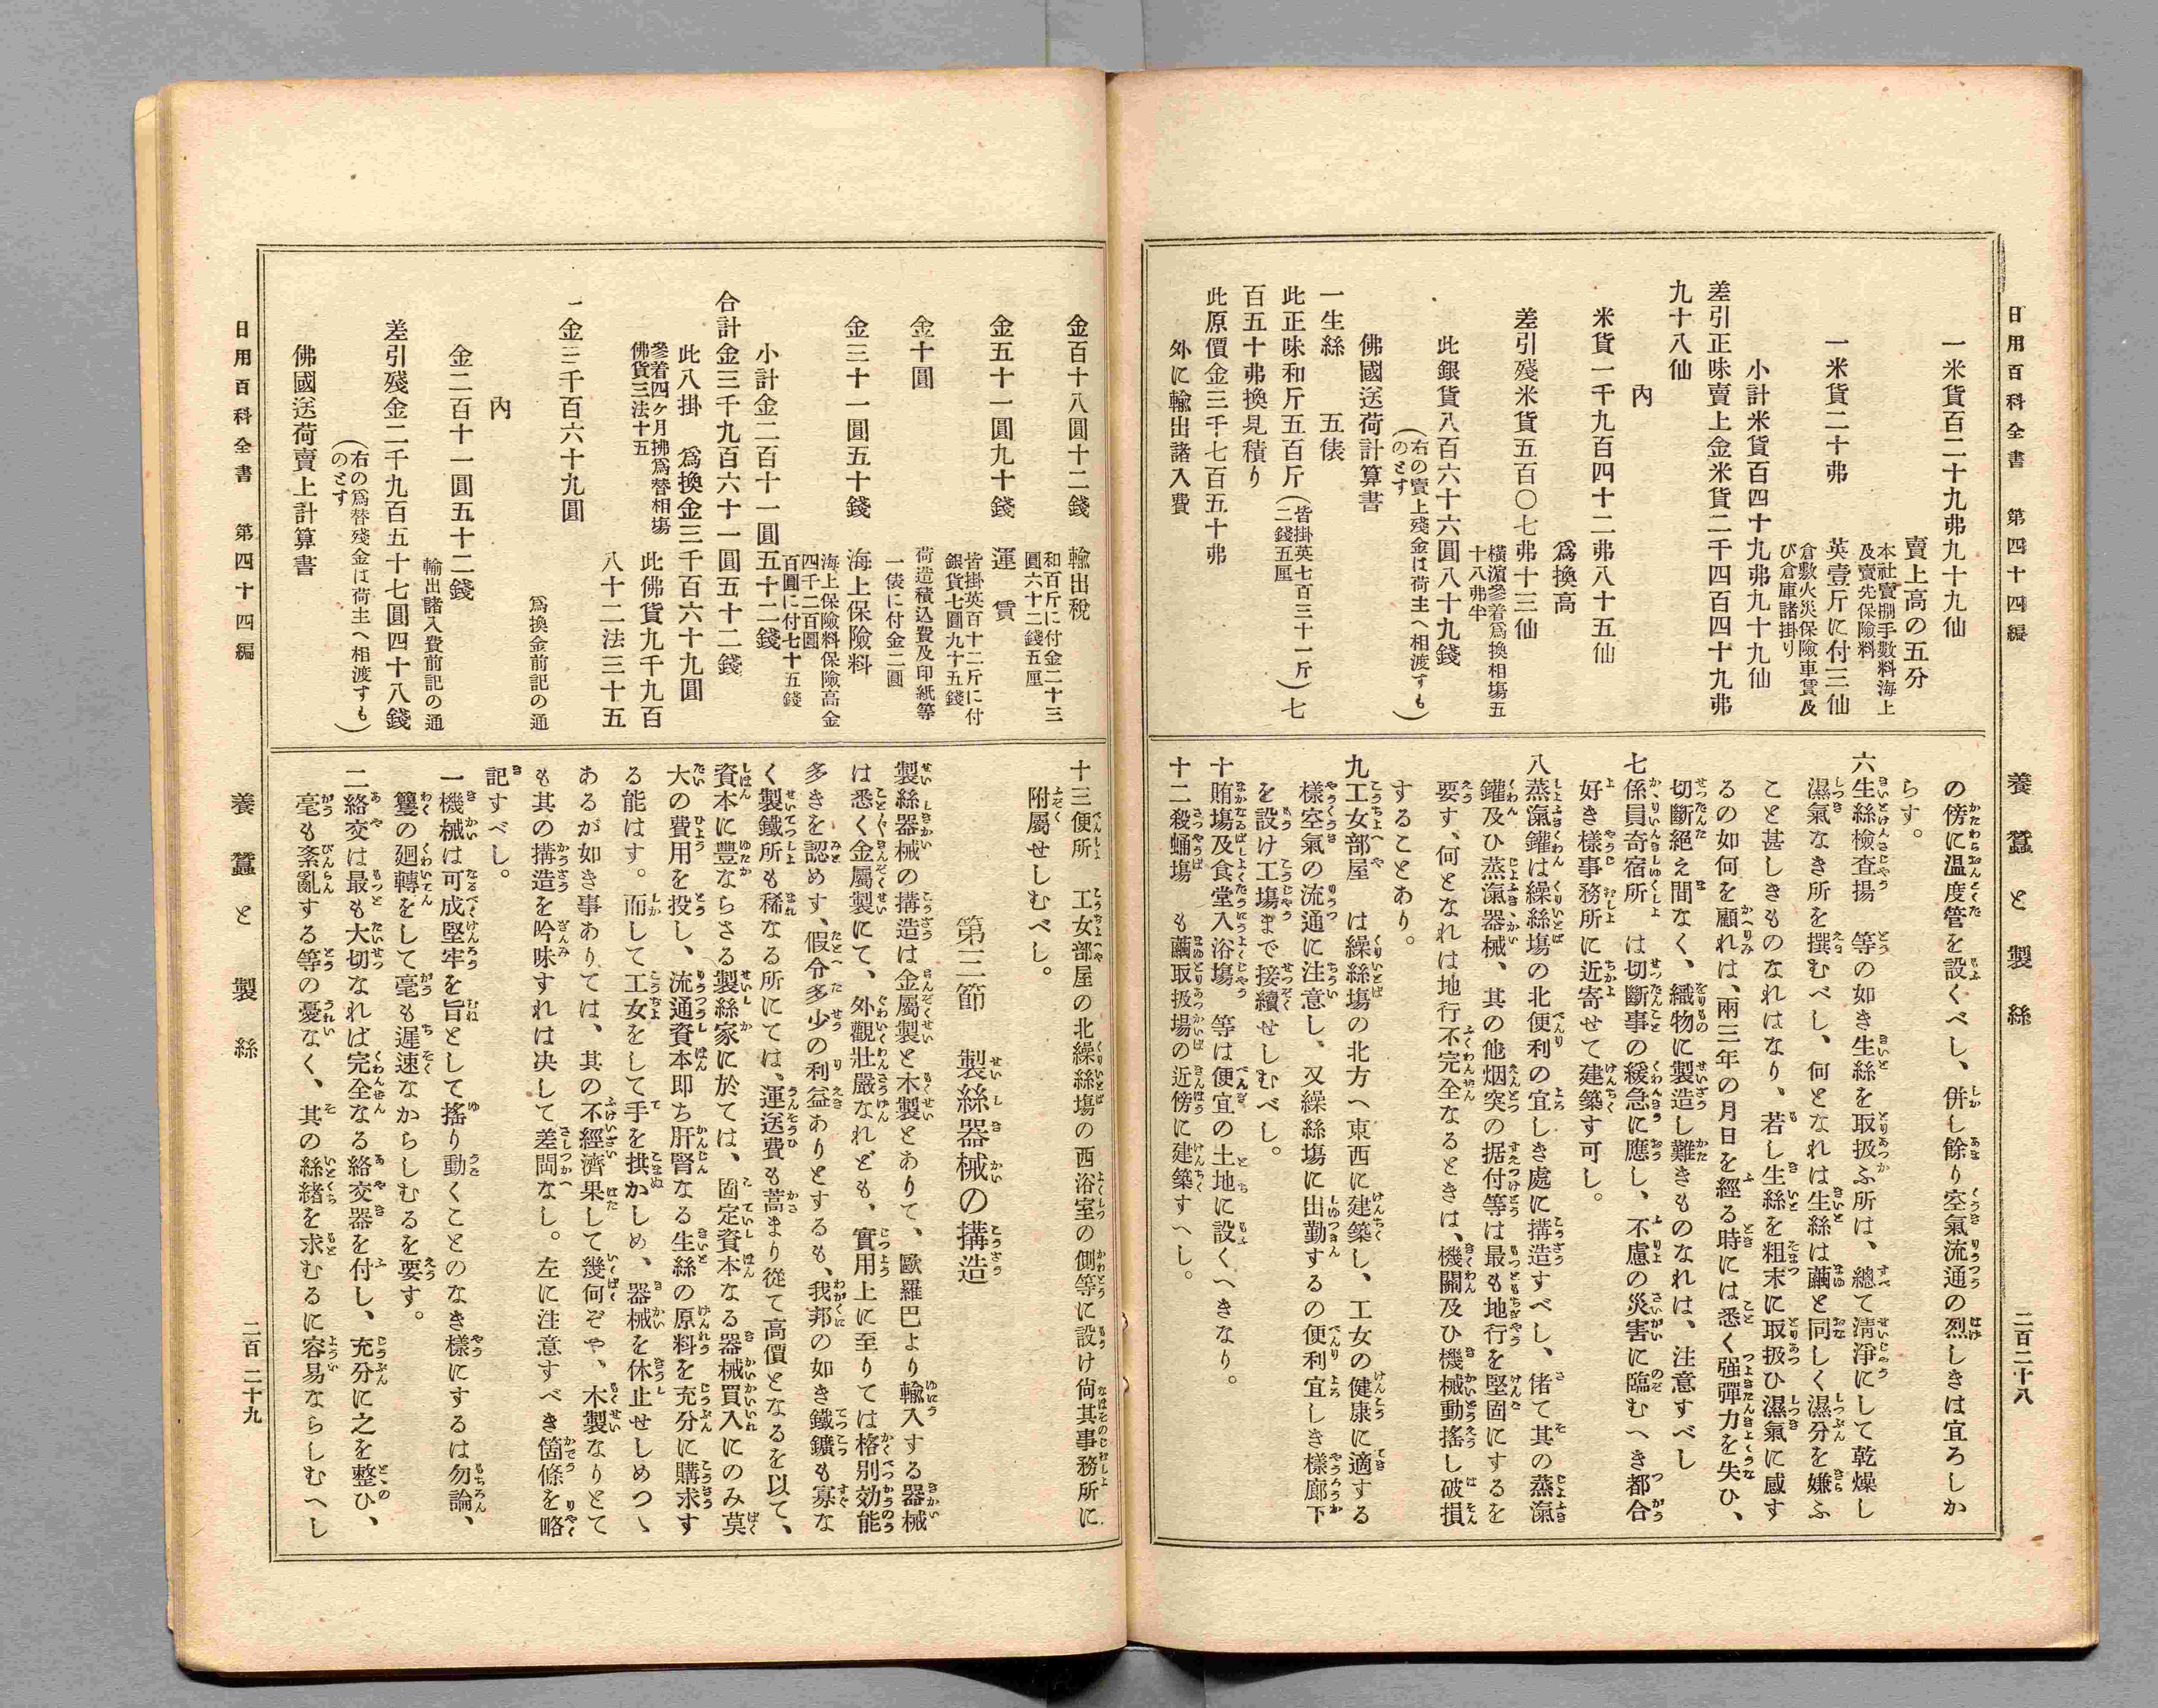 日用百科全書　第四十四編
養蠶と製絲
二百二十八
一米貨百二十九弗九十九仙
賣上高の五分
本社賣捌手數料海上
及賣先保險料
一米貨二十弗
英壹斤に付三仙
倉敷火災保險車賃及
び倉庫諸掛り
小計米貨百四十九弗九十九仙
差引正味賣上金米貨二千四百四十九弗
九十八仙
內
米貨一千九百四十二弗八十五仙
爲換高
差引殘米貨五百〇七弗十三仙
橫濱參着爲換相塲五
十八弗半
此銀貨八百六十六圓八十九錢
(右の賣上殘金は荷主へ相渡すも
のとす)
佛國送荷計算書
一生絲　五俵
此正味和斤五百斤(皆掛英七百三十一斤
二錢五厘)七
百五十弗換見積り
此原價金三千七百五十弗
外に輸出諸入費
の傍に温度管を設くべし、併し餘り空氣流通の烈しきは宜ろしか
らす。
六生絲檢査揚　等の如き生絲を取扱ふ所は、總て淸淨にして乾燥し
濕氣なき所を撰むべし、何となれは生絲は繭と同しく濕分を嫌ふ
こと甚しきものなれはなり、若し生絲を粗末に取扱ひ濕氣に感す
るの如何を顧れは、兩三年の月日を經る時には悉く强彈力を失ひ、
切斷絕え間なく、織物に製造し難きものなれは、注意すべし
七係員寄宿所　は切斷事の緩急に應し、不慮の災害に臨むへき都合
好き樣事務所に近寄せて建築す可し。
八蒸滊鑵は繰絲塲の北便利の宜しき處に搆造すべし、偖て其の蒸滊
鑵及ひ蒸滊器械、其の他烟突の据付等は最も地行を堅固にするを
要す、何となれは地行不完全なるときは、機關及ひ機械動搖し破損
することあり。
九工女部屋　は繰絲塲の北方へ東西に建築し、工女の健康に適する
樣空氣の流通に注意し、又繰絲塲に出勤するの便利宜しき樣廊下
を設け工塲まで接續せしむべし。
十賄塲及食堂入浴塲　等は便宜の土地に設くへきなり。
十二殺蛹塲　も繭取扱場の近傍に建築すへし。
金百十八圓十二錢　輸出稅
和百斤に付金二十三
圓六十二錢五厘
金五十一圓九十錢　運　賃
皆掛英百十二斤に付
銀貨七圓九十五錢
金十圓
荷造積込費及印紙等
一俵に付金二圓
金三十一圓五十錢　海上保險料
海上保險料保險高金
四千二百圓
百圓に付七十五錢
小計金二百十一圓五十二錢
合計金三千九百六十一圓五十二錢
此八掛　爲換金三千百六十九圓
參着四ケ月拂爲替相塲
佛貨三法十五
此佛貨九千九百
八十二法三十五
一金三千百六十九圓
爲換金前記の通
內
金二百十一圓五十二錢
輸出諸入費前記の通
差引殘金二千九百五十七圓四十八錢
(右の爲替殘金は荷主へ相渡すも
のとす)
佛國送荷賣上計算書
十三便所　工女部屋の北繰絲塲の西浴室の側等に設け尙其事務所に
附屬せしむべし。
第三節　製絲器械の搆造
製絲器械の搆造は金屬製と木製とありて、歐羅巴より輸入する器械
は悉く金屬製にて、外觀壯嚴なれども、實用上に至りては格別効能
多きを認めす、假令多少の利益ありとするも、我邦の如き鐵鑛も寡な
く製鐵所も稀なる所にては、運送費も嵩まり從て高價となるを以て、
資本に豐ならさる製絲家に於ては、固定資本なる器械買入にのみ莫
大の費用を投し、流通資本即ち肝腎なる生絲の原料を充分に購求す
る能はす。而して工女をして手を拱かしめ、器械を休止せしめつゝ
あるが如き事ありては、其の不經濟果して幾何ぞや、木製なりとて
も其の搆造を吟味すれは决して差閊なし。左に注意すべき箇條を略
記すべし。
一機械は可成堅牢を旨として搖り動くことのなき樣にするは勿論、
籰の廻轉をして毫も遲速なからしむるを要す。
二絡交は最も大切なれば完全なる絡交器を付し、充分に之を整ひ、
毫も紊亂する等の憂なく、其の絲緒を求むるに容易ならしむへし
日用百科全書　第四十四編
養蠶と製絲
二百二十九